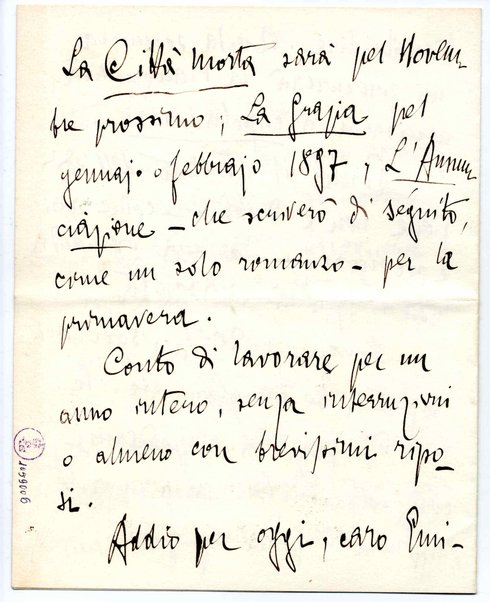 La Città morta sarà pel Novem-
bre prossimo; La Grazia pel
gennajo o febbrajo 1897, L'Annun-
ciazione – che scriverò di seguito,
come un solo romanzo – per la
primavera.
Conto di lavorare per un
anno intero, senza interruzioni
o almeno con brevissimi ripo-
si.
Addio per oggi, caro Emi-